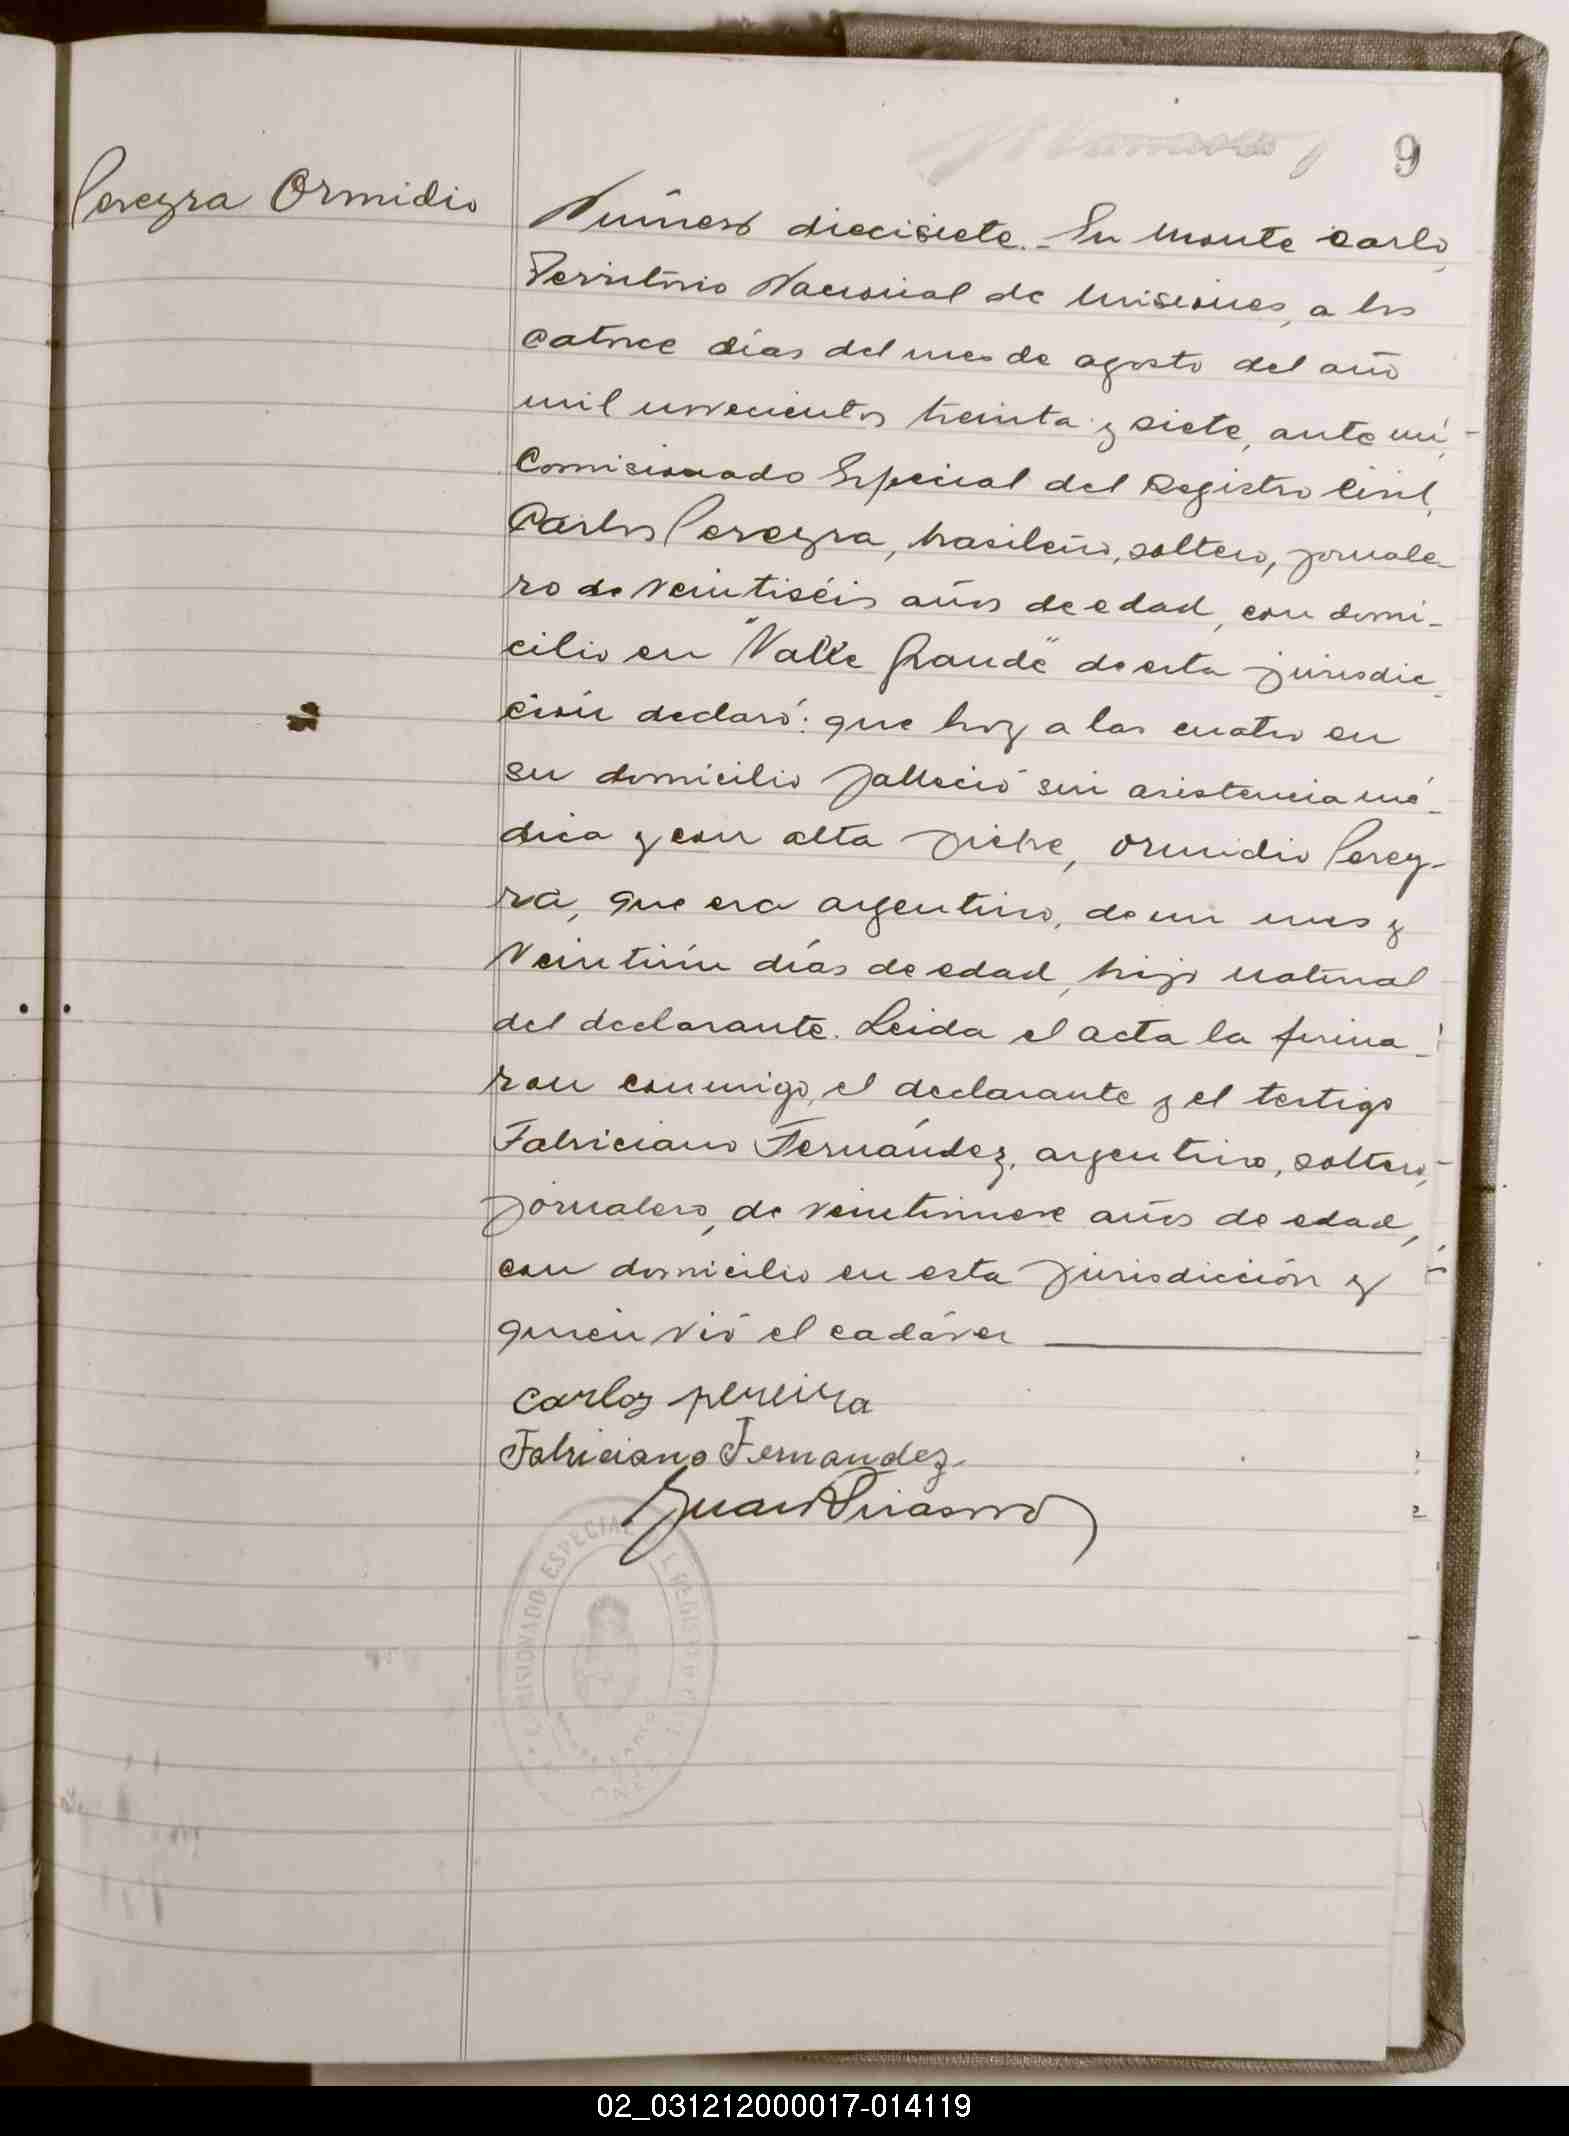 9
Pereyra Ormidio
Número diecisiete.- En Monte Carlo,
Territorio Nacional de Misiones, a los
catorce días del mes de agosto del año
mil novecientos treinta y siete, ante mí,
Comisionado Especial del Registro Civil,
Carlos Pereyra, brasileño, soltero, jornale-
ro de veintiséis años de edad, con domi-
cilio en "Valle Grande" de esta jurisdic-
ción declaró: que hoy a las cuatro en
su domicilio falleció sin asistencia mé-
dica y con alta fiebre, Ormidio Perey-
ra, que era argentino, de un mes y
veintiún días de edad, hijo natural
del declarante. Leida el acta la firma-
ron conmigo, el declarante y el testigo
Fabriciano Fernández, argentino, soltero,
jornalero, de veintinueve años de edad,
con domicilio en esta jurisdicción y
quien vió el cadáver
Carlos pereira
Fabriciano Fernandez
Juan
COMISIONADO ESPECIAL
02_031212000017-014119